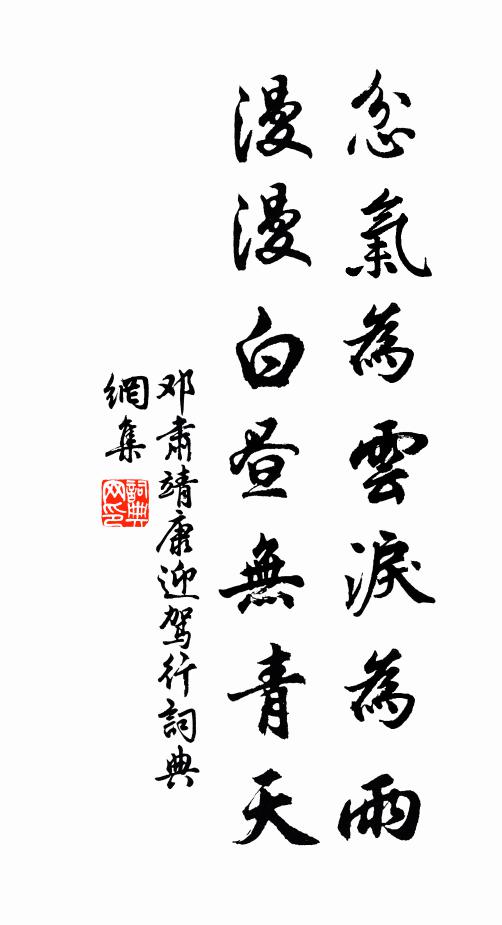 忿氣為雲淚為雨
漫漫白晝無青天
邓肅靖康迎駕行詞典
網集
詞典
网印